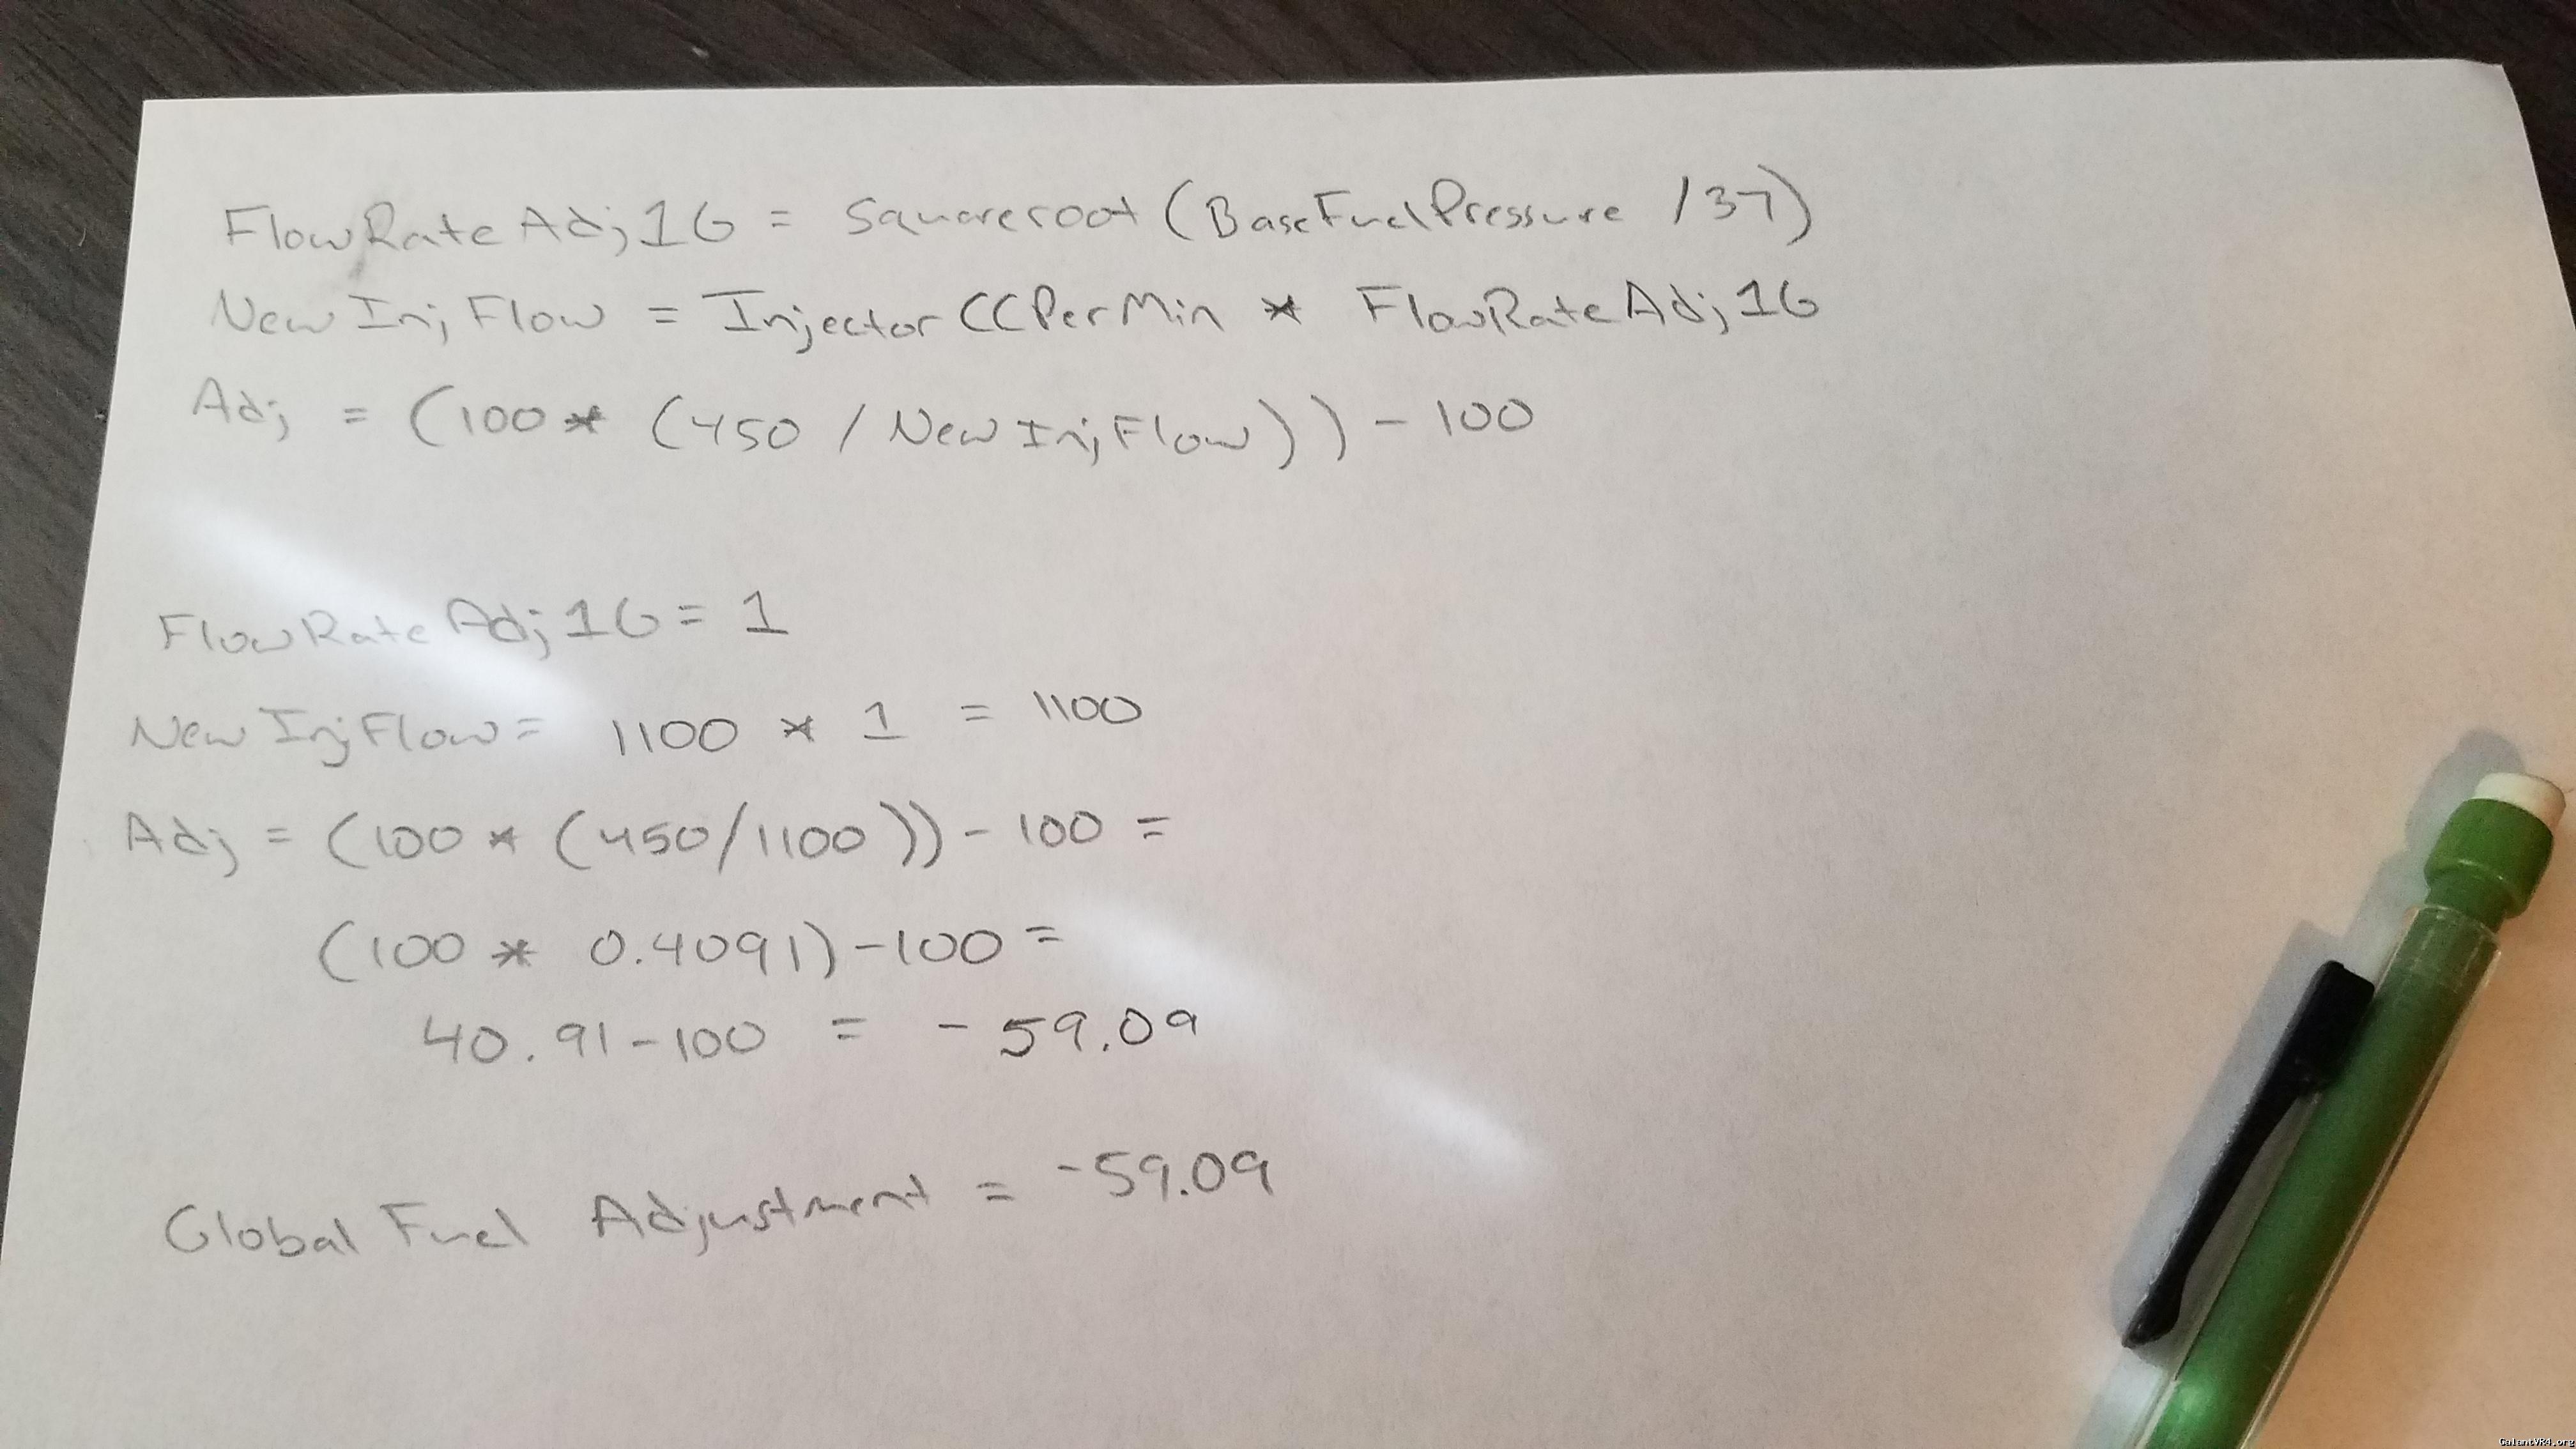 FlowRateAdj1G = Squareroot (BaseFuelPressure /37)
NewInjFlow = InjectorCCPerMin * FlowRateAdj1G
Adj = (100 * (450 / NewInjFlow)) - 100
FlowRateAdj1G = 1
NewInjFlow = 1100 * 1 = 1100
Adj = (100 * (450/1100)) - 100 =
(100 * 0.4091) - 100 =
40.91 - 100 = - 59.09
Global Fuel Adjustment = -59.09
GalantVR4.org